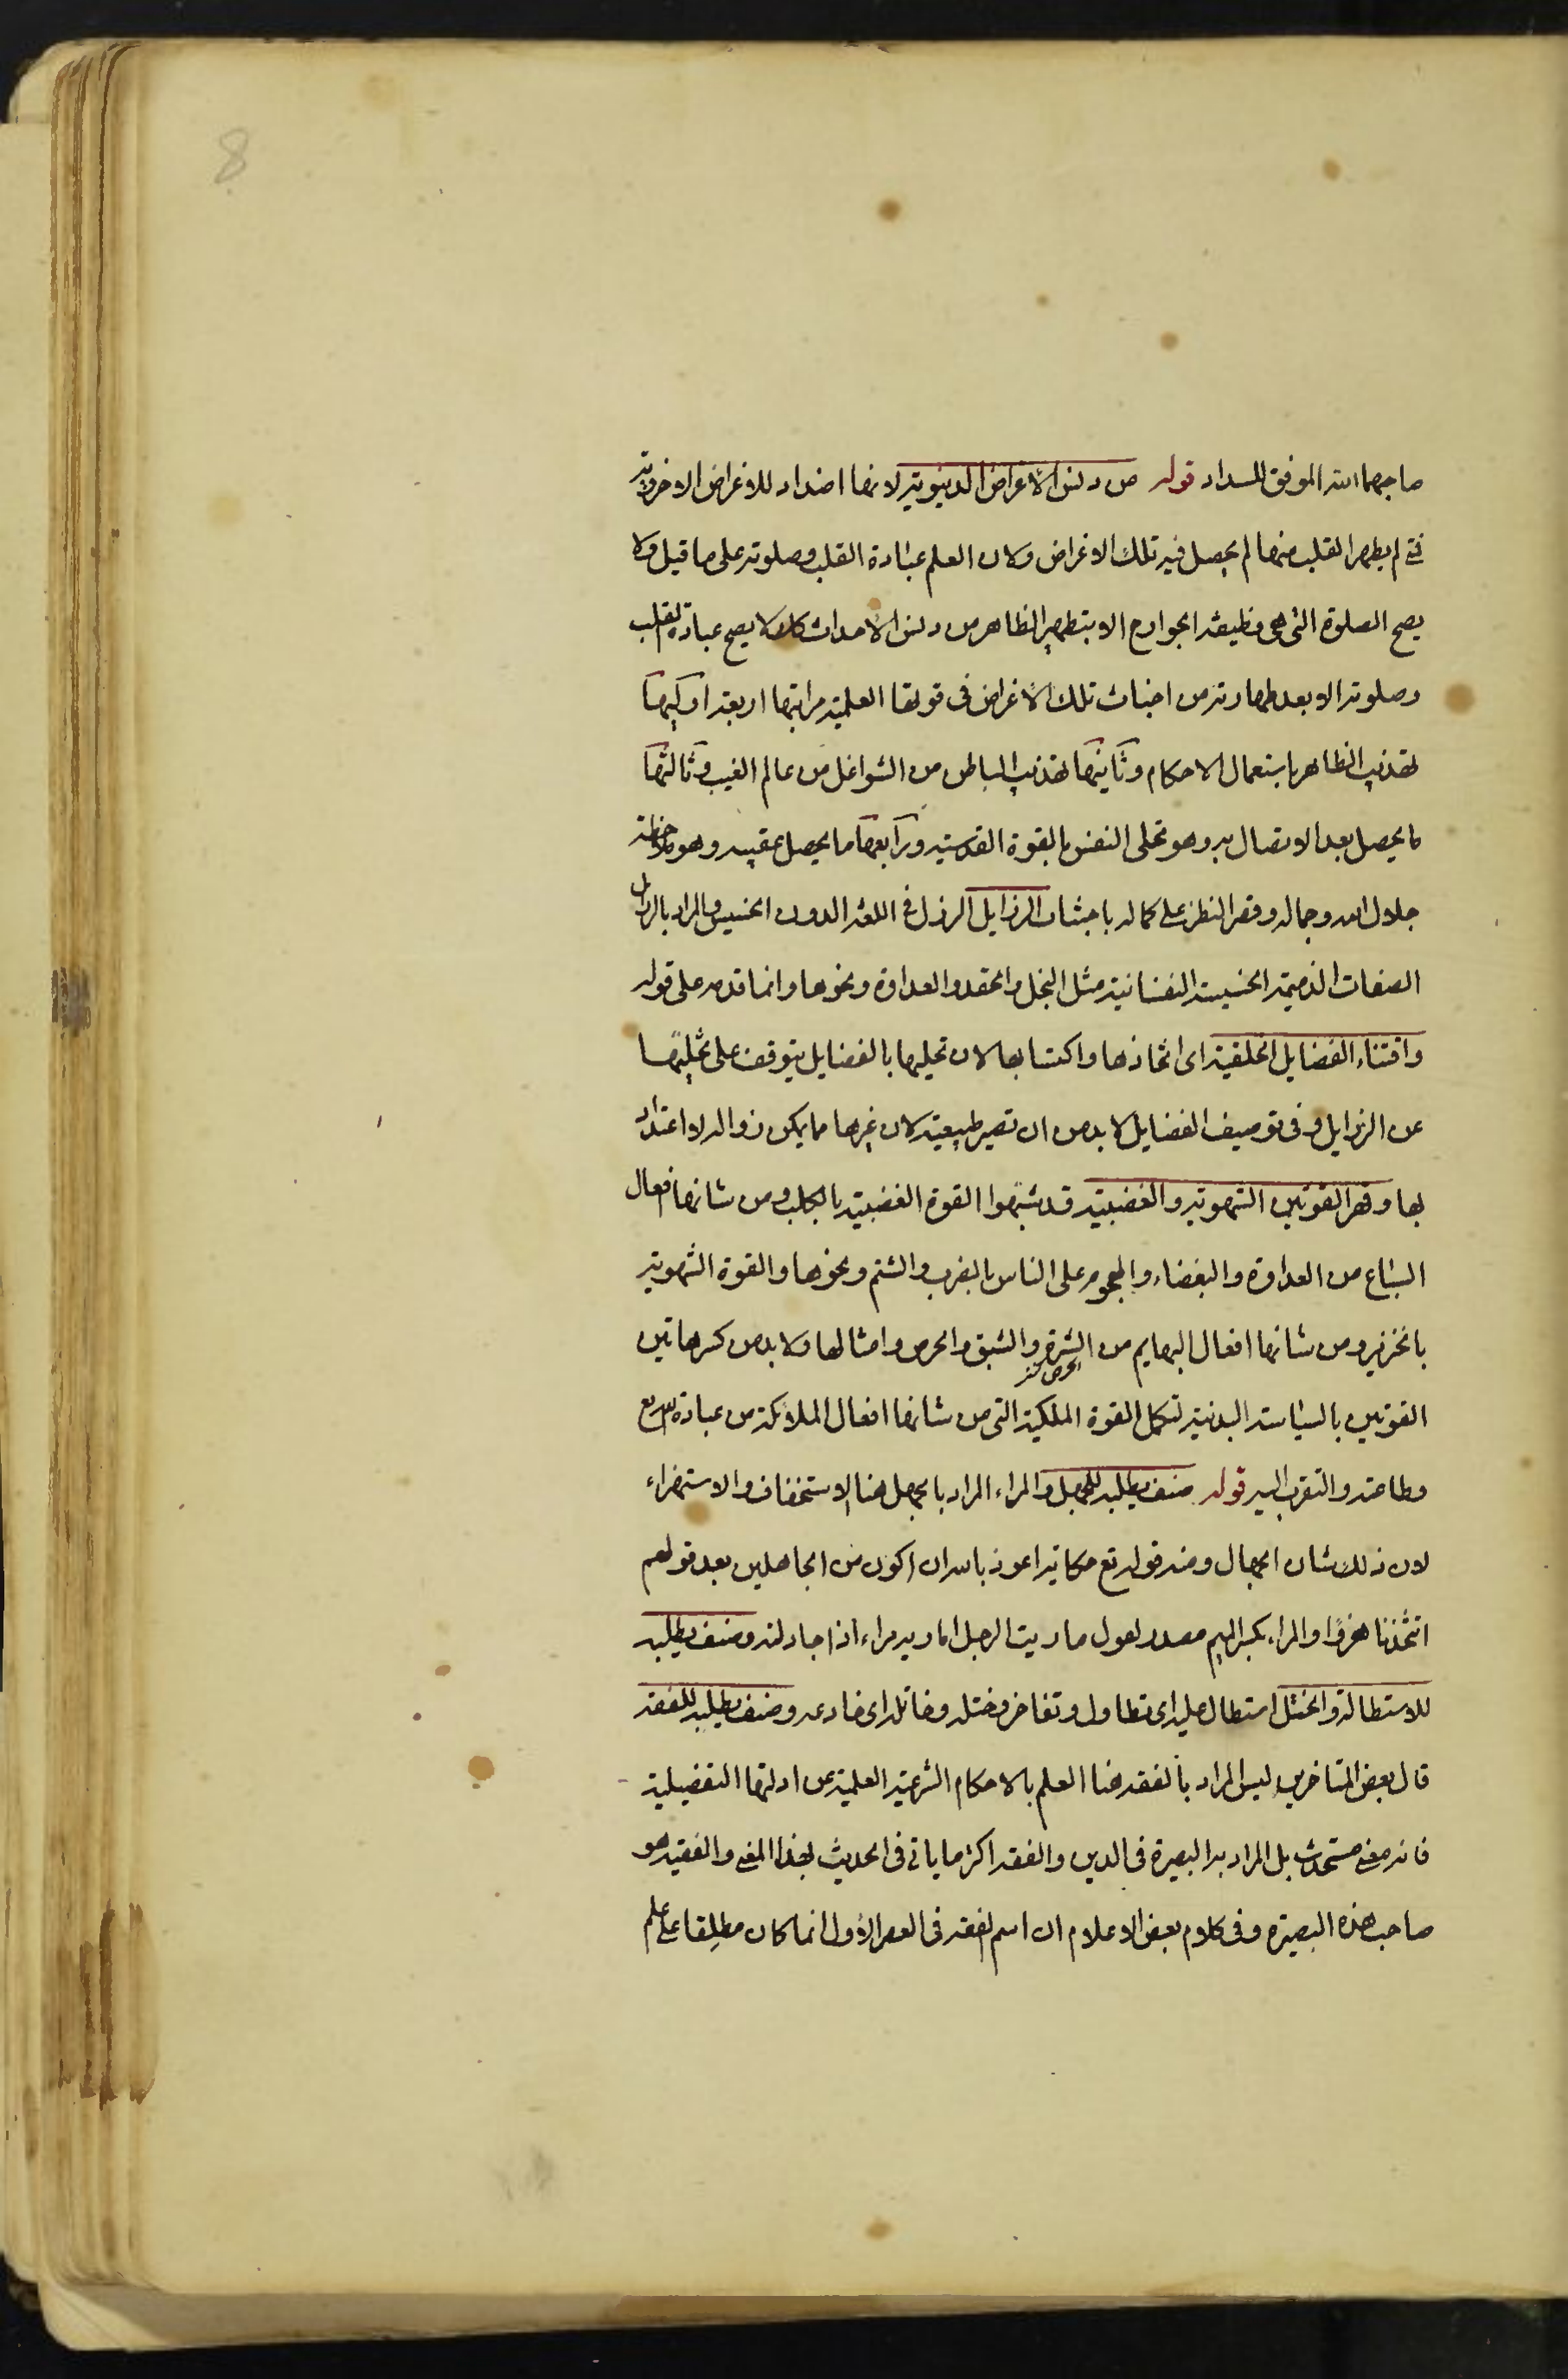 8
صاحبهما الله الموفق للسداد قوله من دنس الاغراض الدنيوية لانها اضداد للاغراض الاخروية
فمتى لم يطهر القلب منها لم يحصل فيه تلك الاغراض ولان العلم عبادة القلب وصلوته على ما قيل ولا
يصح الصلوة التى هى وظيفة الجوارح الا بتطهير الظاهر من دنس الاحداث كذلك لا يصح عبادة القلب
وصلوته الا بعد طهارته من اخباث تلك الاغراض فى قوتها العلمية مراتبها اربعة اوليها
تهذيب الظاهر باستعمال الاحكام وثانيها تهذيب الباطن من الشواغل من عالم الغيب وثالثها
ما يحصل بعد الاتصال به وهو تحلى النفس بالقوة القدسية ورابعها ما يحصل عقيبه وهو ملاحظة
جلال الله وجماله وقصر النظر على كماله باجتناب الرذايل الرذل فى اللغة الدون الخسيس والمراد بالرذايل
الصفات الذميمة الخسيسة النفسانية مثل البخل والحقد والعداوة ونحوها وانما قدمه على قوله
واقتناء الفضايل الخلقية اى اتخاذها واكتسابها لان تحليها بالفضايل يتوقف على تخليتها
عن الرذايل وفى توصيف الفضايل لا بد من ان تصير طبيعية لان غيرها مما يمكن زواله لا اعتداد
بها وقهر القوتين الشهوية والغضبية قد شبهوا القوة الغضبية بالكلب ومن شانها افعال
السباع من العداوة والبغضاء والهجوم على الناس بالضرب والشتم ونحوها والقوة الشهوية
بالخنزير ومن شانها افعال البهايم من الشره والشبق والحرص وامثالها ولا بد من كسر هاتين
القوتين بالسياسة البدنية لتكمل القوة الملكية التى من شانها افعال الملائكة من عبادة الله تع
وطاعته والتقرب اليه قوله صنف يطلبه للجهل والمراء المراد بالجهل هنا الاستخفاف والاستهزاء
لان ذلك شان الجهال ومنه قوله تع حكاية اعوذ بالله ان اكون من الجاهلين بعد قولهم
اتتخذنا هزوًا والمراء بكسر الميم مصدر تقول ماريت الرجل اماريه مراء اذا جادلته وصنف يطلبه
للاستطالة والختل استطال عليه اى تطاول وتفاخر وختله وخاتله اى خادعه وصنف يطلبه للفقه
قال بعض المتاخرين ليس المراد بالفقه هنا العلم بالاحكام الشرعية العلمية عن ادلتها التفصيلية
فانه معنى مستحدث بل المراد به البصيرة فى الدين والفقه اكثر ما ياتى فى الحديث بهذا المعنى والفقيه هو
صاحب هذه البصيرة وفى كلام بعض الاعلام ان اسم الفقه فى العصر الاول انما كان مطلقا على علم